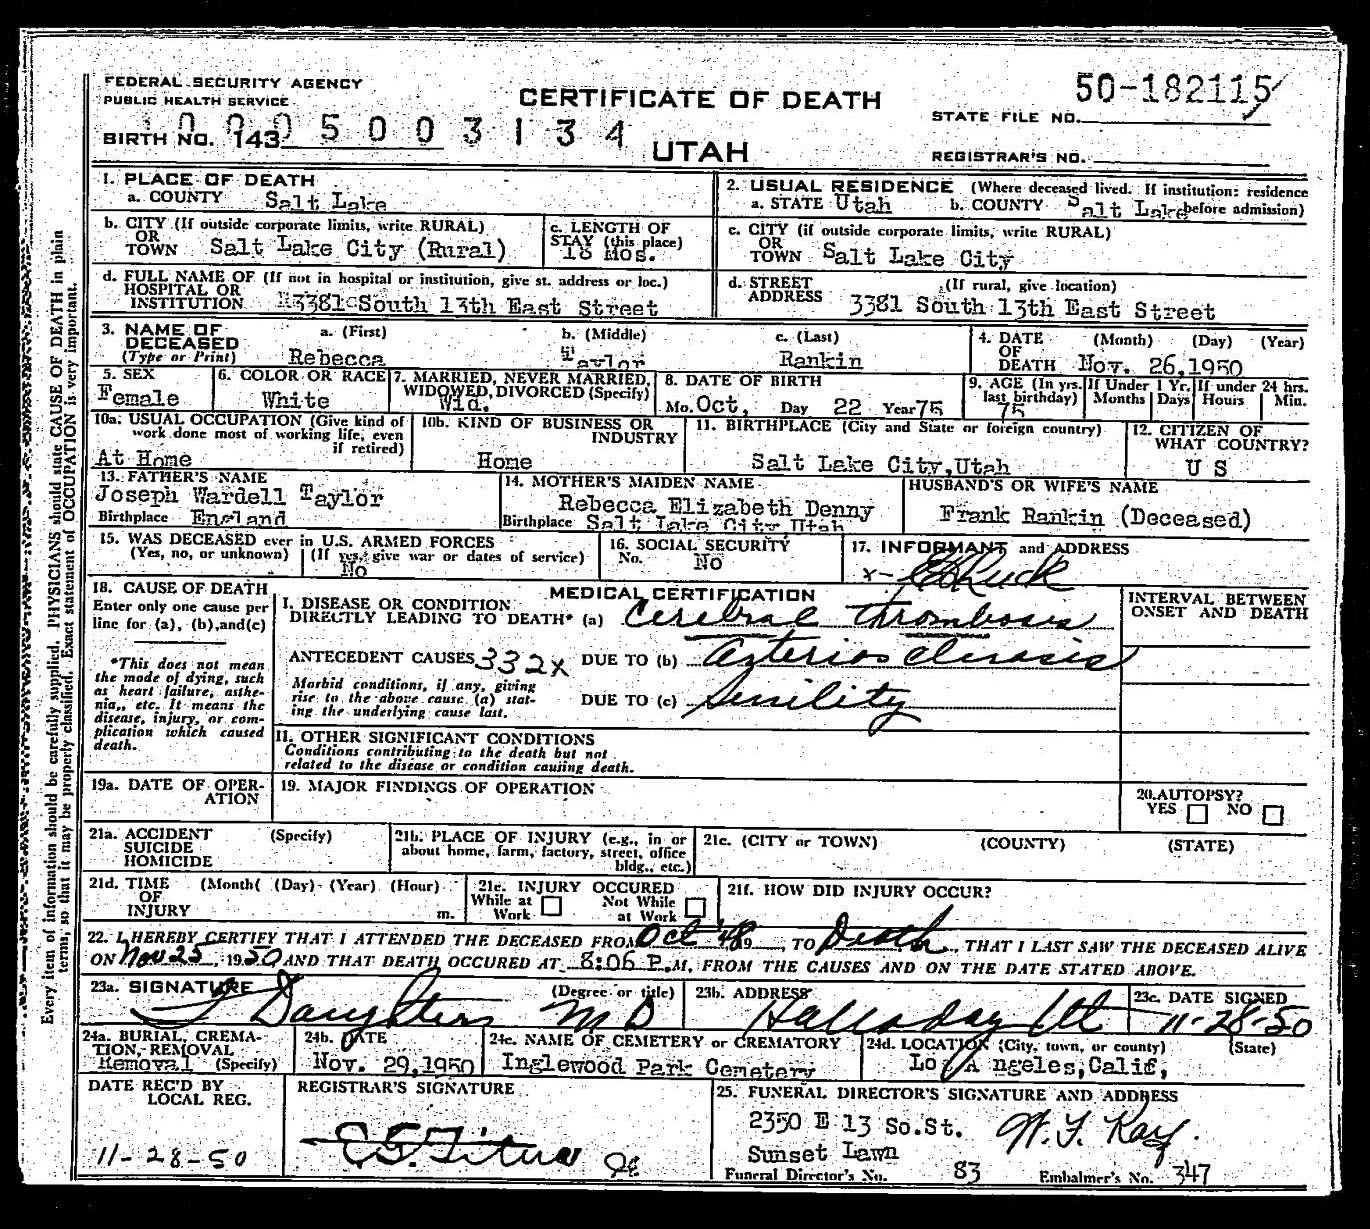 FEDERAL SECURITY AGENCY
PUBLIC HEALTH SERVICE
CERTIFICATE OF DEATH
50-182115
STATE FILE NO.
0005003134
BIRTH NO. 143
UTAH
REGISTRAR'S NO.
1. PLACE OF DEATH
a. COUNTY Salt Lake
2. USUAL RESIDENCE (Where deceased lived. If institution: residence before admission)
a. STATE Utah b. COUNTY Salt Lake
b. CITY (If outside corporate limits, write RURAL)
OR
TOWN Salt Lake City (Rural)
c. LENGTH OF
STAY (this place)
18 Mos.
c. CITY (if outside corporate limits, write RURAL)
OR
TOWN Salt Lake City
d. FULL NAME OF (If not in hospital or institution, give st. address or loc.)
HOSPITAL OR
INSTITUTION 3381 South 13th East Street
d. STREET (If rural, give location)
ADDRESS 3381 South 13th East Street
3. NAME OF a. (First) b. (Middle) c. (Last)
DECEASED
(Type or Print) Rebecca Taylor Rankin
4. DATE (Month) (Day) (Year)
OF
DEATH Nov. 26,1950
5. SEX
Female
6. COLOR OR RACE
White
7. MARRIED, NEVER MARRIED,
WIDOWED, DIVORCED (Specify)
Wid.
8. DATE OF BIRTH
Mo. Oct, Day 22 Year 75
9. AGE (In yrs.
last birthday)
75
If Under 1 Yr.
Months Days
If under 24 hrs.
Hours Min.
10a. USUAL OCCUPATION (Give kind of
work done most of working life, even
if retired)
At Home
10b. KIND OF BUSINESS OR
INDUSTRY
Home
11. BIRTHPLACE (City and State or foreign country)
Salt Lake City,Utah
12. CITIZEN OF
WHAT COUNTRY?
U S
13. FATHER'S NAME
Joseph Wardell Taylor
Birthplace England
14. MOTHER'S MAIDEN NAME
Rebecca Elizabeth Denny
Birthplace Salt Lake City Utah
HUSBAND'S OR WIFE'S NAME
Frank Rankin (Deceased)
15. WAS DECEASED ever in U.S. ARMED FORCES
(Yes, no, or unknown) (If yes, give war or dates of service)
No
16. SOCIAL SECURITY
No. No
17. INFORMANT and ADDRESS
x-
18. CAUSE OF DEATH
Enter only one cause per
line for (a), (b),and(c)
*This does not mean
the mode of dying, such
as heart failure, asthe-
nia,, etc. It means the
disease, injury, or com-
plication which caused
death.
MEDICAL CERTIFICATION
I. DISEASE OR CONDITION
DIRECTLY LEADING TO DEATH* (a) Cerebral thrombosis
ANTECEDENT CAUSES 332x DUE TO (b) arteriosclerosis
Morbid conditions, if any, giving
rise to the above cause (a) stat-
ing the underlying cause last.
DUE TO (c) Senility
INTERVAL BETWEEN
ONSET AND DEATH
11. OTHER SIGNIFICANT CONDITIONS
Conditions contributing to the death but not
related to the disease or condition causiing death.
19a. DATE OF OPER-
ATION
19. MAJOR FINDINGS OF OPERATION
20. AUTOPSY?
YES NO
21a. ACCIDENT (Specify)
SUICIDE
HOMICIDE
21b. PLACE OF INJURY (e.g., in or
about home, farm, factory, street, office
bldg., etc.)
21c. (CITY or TOWN) (COUNTY) (STATE)
21d. TIME (Month( (Day) (Year) (Hour)
OF
INJURY m.
21e. INJURY OCCURED
While at Work
Not While at Work
21f. HOW DID INJURY OCCUR?
22. I HEREBY CERTIFY THAT I ATTENDED THE DECEASED FROM Oct '48 19 , TO Death, THAT I LAST SAW THE DECEASED ALIVE
ON Nov 25, 1950 AND THAT DEATH OCCURED AT 8:06 P.M. FROM THE CAUSES AND ON THE DATE STATED ABOVE.
23a. SIGNATURE (Degree or title)
M D
23b. ADDRESS
Holladay Ut
23c. DATE SIGNED
11-28-50
24a. BURIAL, CREMA-
TION, REMOVAL
Removal (Specify)
24b. DATE
Nov. 29,1950
24c. NAME OF CEMETERY or CREMATORY
Inglewood Park Cemetery
24d. LOCATION (City, town, or county) (State)
Los Angeles,Calif,
DATE REC'D BY
LOCAL REG.
11-28-50
REGISTRAR'S SIGNATURE
25. FUNERAL DIRECTOR'S SIGNATURE AND ADDRESS
2350 E 13 So.St. W. F. Kay.
Sunset Lawn
Funeral Director's No. 83 Embalmer's No. 347
Every item of information should be carefully supplied. PHYSICIANS should state CAUSE OF DEATH in plain
terms, so that it may be properly classified. Exact statement of OCCUPATION is very important.